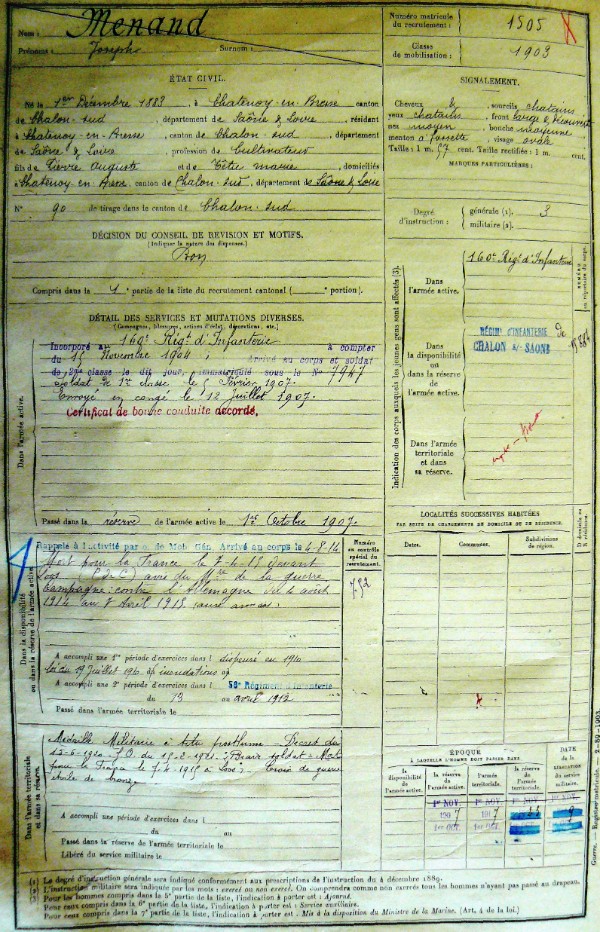 Nom : Menand
Prénoms : Joseph Surnom :
Numéro matricule du recrutement : 1505
Classe de mobilisation : 1903
ÉTAT CIVIL.
Né le 1er Décembre 1883, à Chatenoy-en-Bresse canton
de Chalon-sud, département de Saône & Loire, résidant
à Chatenoy-en-Bresse, canton de Chalon-sud, département
de Saône & Loire, profession de Cultivateur
fils de Pierre Auguste et de Têtu marie, domiciliés
à Chatenoy en Bresse, canton de Chalon-sud, département de Saône & Loire
N° 90 de tirage dans le canton de Chalon-sud
DÉCISION DU CONSEIL DE REVISION ET MOTIFS.
(Indiquer la nature des dispenses.)
Bon
Compris dans la 1e partie de la liste du recrutement cantonal ( portion).
SIGNALEMENT.
Cheveux & sourcils chatains
yeux chatains, front large &
nez moyen, bouche moyenne
menton à fossette, visage ovale
Taille : 1 m. 57 cent. Taille rectifiée : 1 m. cent.
MARQUES PARTICULIÈRES :
Degré d'instruction : générale (1). 3
militaire (2).
DÉTAIL DES SERVICES ET MUTATIONS DIVERSES.
(Campagnes, blessures, actions d'éclat, décorations, etc.)
Incorporé au 160e Régt d'Infanterie à compter
du 15 Novembre 1904, arrivé au corps et soldat
de 2me classe le dit jour, immatriculé sous le N° 7947
Soldat de 1re classe le 5 Février 1907.
Envoyé en congé le 12 Juillet 1907.
Certificat de bonne conduite accordé.
Dans l'armée active.
Passé dans la réserve de l'armée active le 1er Octobre 1907.
Indication des corps auxquels les jeunes gens sont affectés (3).
Dans l'armée active.
160e Régt d'Infanterie
NUMÉRO au répertoire du corps.
Dans la disponibilité ou dans la réserve de l'armée active.
RÉGIMT D'INFANTERIE de
CHALON s/- SAONE
Dans l'armée territoriale et dans sa réserve.
Dans la disponibilité ou dans la réserve de l'armée active.
Rappelé à l'activité par de Mob. Gén. Arrivé au corps le 4-8-14
Mort pour la France le 7-4-15 devant
avis du Mtre de la guerre
Campagne contre l'Allemagne du 4 août
1914 au 7 Avril 1915
Numéro au contrôle spécial du recrutement.
752
A accompli une 1re période d'exercices dans l dispensé en 1910
loi du 19 Juillet 1910 inondations
A accompli une 2e période d'exercices dans l 56e Régiment d'Infanterie
du 13 au avril 1912
Passé dans l'armée territoriale le
LOCALITÉS SUCCESSIVES HABITÉES
PAR SUITE DE CHANGEMENTS DE DOMICILE OU DE RÉSIDENCE.
Dates. Communes. Subdivisions de région. D domicile ou R résidence.
Dans l'armée territoriale et dans sa réserve.
Médaille Militaire à titre posthume. Décret du
13-6-1920 J.O. du 15-2-1921. "Brave soldat Mort
pour la France le 7-4-1915 à Croix de guerre
étoile de bronze
A accompli une période d'exercices dans l
du au
Passé dans la réserve de l'armée territoriale le
Libéré du service militaire le
ÉPOQUE
À LAQUELLE L'HOMME DOIT PASSER DANS
la disponibilité de l'armée active. la réserve de l'armée active. l'armée territoriale. la réserve de l'armée territoriale.
DATE de la LIBÉRATION du service militaire.
1er NOV. 1er NOV.
1907 1917
1er OCT. 1er OCT.
Guerre. — Registre matricule. — 2-89-1903.
Le degré d'instruction générale sera indiqué conformément aux prescriptions de l'instruction du 4 décembre 1889.
L'instruction militaire sera indiquée par les mots : exercé ou non exercé. On comprendra comme non exercés tous les hommes n'ayant pas passé au drapeau.
Pour les hommes compris dans la 5e partie de la liste, l'indication à porter est : Ajourné.
Pour ceux compris dans la 6e partie de la liste, l'indication à porter est : Service auxiliaire.
Pour ceux compris dans la 7e partie de la liste, l'indication à porter est : Mis à la disposition du Ministre de la Marine. (Art. 4 de la loi.)